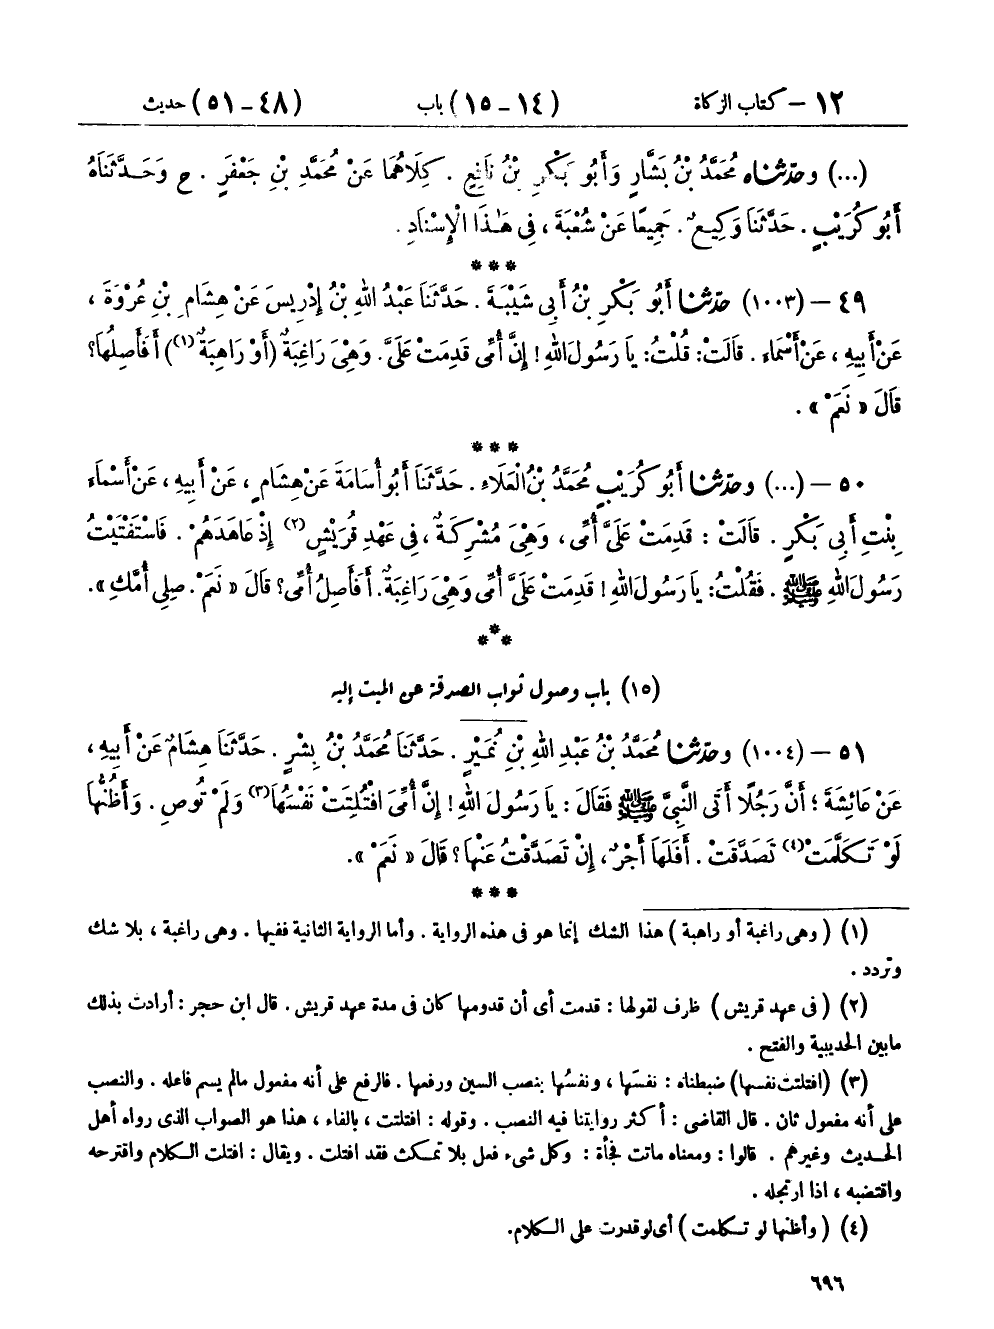 ١٢ – كتاب الزكاة (١٤ – ١٥) باب (٤٨ – ٥١) حديث
(...) وحدّثناه مُحَمَّدُ بْنُ بَشَّارٍ وَأَبُو بَكْرِ بْنُ نَافِعٍ . كِلَاهُمَا عَنْ مُحَمَّدِ بْنِ جَعْفَرٍ . ح وَحَدَّثَنَاهُ
أَبُو كُرَيْبٍ . حَدَّثَنَا وَكِيعٌ . جَمِيعًا عَنْ شُعْبَةَ ، فِى هَٰذَا الْإِسْنَادِ .
***
٤٩ – (١٠٠٣) حدّثنا أَبُو بَكْرِ بْنُ أَبِى شَيْبَةَ . حَدَّثَنَا عَبْدُ اللهِ بْنُ إِدْرِيسَ عَنْ هِشَامِ بْنِ عُرْوَةَ ،
عَنْ أَبِيهِ ، عَنْ أَسْمَاءَ . قَالَتْ : قُلْتُ : يَا رَسُولَ اللهِ ! إِنَّ أُمِّى قَدِمَتْ عَلَىَّ . وَهْىَ رَاغِبَةٌ (أَوْ رَاهِبَةٌ(١)) أَفَأَصِلُهَا؟
قَالَ « نَعَمْ » .
***
٥٠ – (...) وحدّثنا أَبُو كُرَيْبٍ مُحَمَّدُ بْنُ الْعَلَاءِ . حَدَّثَنَا أَبُو أُسَامَةَ عَنْ هِشَامٍ ، عَنْ أَبِيهِ ، عَنْ أَسْمَاءَ
بِنْتِ أَبِى بَكْرٍ . قَالَتْ : قَدِمَتْ عَلَىَّ أُمِّى ، وَهْىَ مُشْرِكَةٌ ، فِى عَهْدِ قُرَيْشٍ(٢) إِذْ عَاهَدَهُمْ . فَاسْتَفْتَيْتُ
رَسُولَ اللهِ ﷺ . فَقُلْتُ : يَا رَسُولَ اللهِ ! قَدِمَتْ عَلَىَّ أُمِّى وَهْىَ رَاغِبَةٌ . أَفَأَصِلُ أُمِّى ؟ قَالَ « نَعَمْ . صِلِى أُمَّكِ » .
***
(١٥) باب وصول ثواب الصدقة عن الميت إليه
٥١ – (١٠٠٤) وحدّثنا مُحَمَّدُ بْنُ عَبْدِ اللهِ بْنِ نُمَيْرٍ . حَدَّثَنَا مُحَمَّدُ بْنُ بِشْرٍ . حَدَّثَنَا هِشَامٌ عَنْ أَبِيهِ ،
عَنْ عَائِشَةَ ؛ أَنَّ رَجُلًا أَتَى النَّبِىَّ ﷺ فَقَالَ : يَا رَسُولَ اللهِ ! إِنَّ أُمِّىَ افْتُلِتَتْ نَفْسُهَا(٣) وَلَمْ تُوصِ . وَأَظُنُّهَا
لَوْ تَكَلَّمَتْ(٤) تَصَدَّقَتْ . أَفَلَهَا أَجْرٌ ، إِنْ تَصَدَّقْتُ عَنْهَا ؟ قَالَ « نَعَمْ » .
***
(١) ( وهى راغبة أو راهبة ) هذا الشك إنما هو فى هذه الرواية . وأما الرواية الثانية ففيها . وهى راغبة ، بلا شك
وتردد .
(٢) ( فى عهد قريش ) ظرف لقولها : قدمت أى أن قدومها كان فى مدة عهد قريش . قال ابن حجر : أرادت بذلك
مابين الحديبية والفتح .
(٣) (افتلتت نفسها) ضبطناه : نفسَها ، ونفسُها بنصب السين ورفعها . فالرفع على أنه مفعول مالم يسم فاعله . والنصب
على أنه مفعول ثان . قال القاضى : أكثر روايتنا فيه النصب . وقوله : افتلتت ، بالفاء ، هذا هو الصواب الذى رواه أهل
الحديث وغيرهم . قالوا : ومعناه ماتت فجأة : وكل شىء فعل بلا تمكث فقد افتلت . ويقال : افتلت الكلام واقترحه
واقتضبه ، اذا ارتجله .
(٤) ( وأظنها لو تكلمت ) أى لو قدرت على الكلام.
٦٩٦